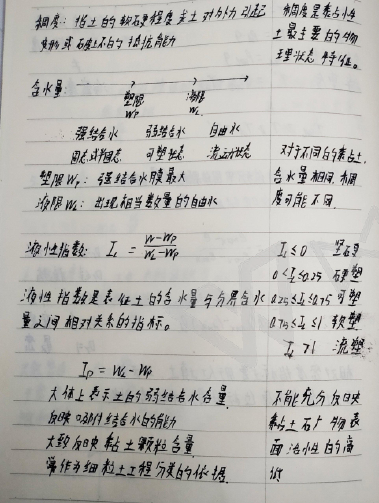 稠度：指土的软硬程度或土对外力引起
变形或破坏的抵抗能力
稠度是黏性
土最主要的物
理状态特征。
含水量
塑限 液限
Wp WL
强结合水 弱结合水 自由水
固态或半固态 可塑状态 流动状态
塑限Wp：强结合水膜最大
液限WL：出现相当数量的自由水
对于不同的黏土，
含水量相同，稠
度可能不同
液性指数：IL = (W-Wp)/(WL-Wp)
液性指数是表征土的含水量与分界含水
量之间相对关系的指标。
IL≤0 坚硬
0<IL≤0.25 硬塑
0.25≤IL≤0.75 可塑
0.75≤IL≤1 软塑
IL>1 流塑
Ip = WL - Wp
大体上表示土的弱结合水含量
反映吸附结合水的能力
大致反映黏土颗粒含量
常作为细粒土工程分类的依据
不能充分反映
黏土矿物表
面活性的高
低